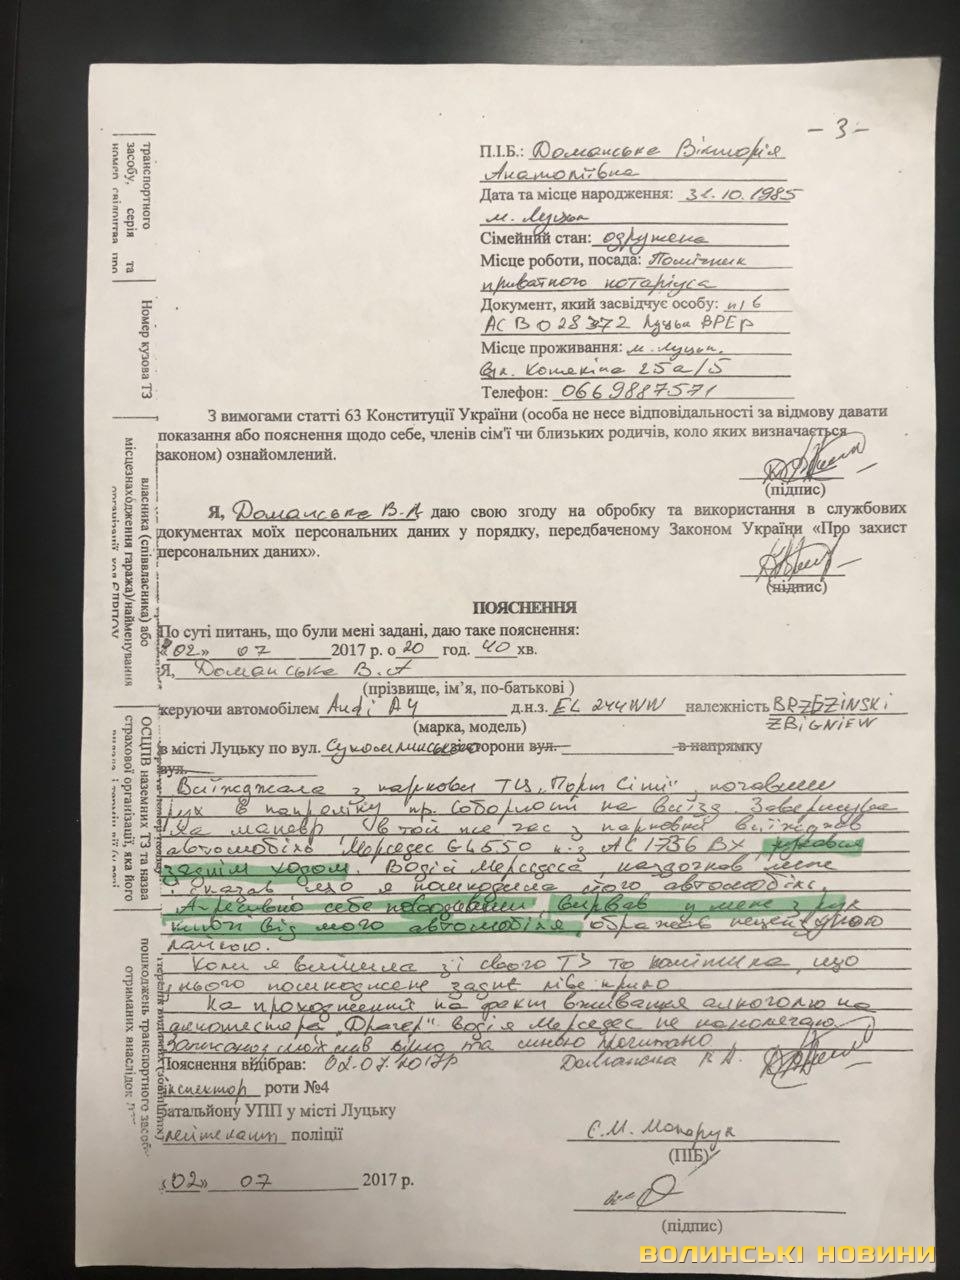 - 3 -
П.І.Б.: Доманська Вікторія
Анатоліївна
Дата та місце народження: 31.10.1985
м. Луцьк
Сімейний стан: одружена
Місце роботи, посада: Помічник
приватного нотаріуса
Документ, який засвідчує особу: п/б
АСВ 028372 Луцьк ВРЕР
Місце проживання: м. Луцьк.
вул. 25а/5
Телефон: 0669887571
З вимогами статті 63 Конституції України (особа не несе відповідальності за відмову давати
показання або пояснення щодо себе, членів сім'ї чи близьких родичів, коло яких визначається
законом) ознайомлений.
(підпис)
Я, Доманська В.А даю свою згоду на обробку та використання в службових
документах моїх персональних даних у порядку, передбаченому Законом України «Про захист
персональних даних».
(підпис)
ПОЯСНЕННЯ
По суті питань, що були мені задані, даю таке пояснення:
«02» 07 2017 р. о 20 год. 40 хв.
Я, Доманська В.А
(прізвище, ім'я, по-батькові )
керуючи автомобілем Audi A4 д.н.з. EL 244WW належність BRZEZINSKI
ZBIGNIEW
(марка, модель)
в місті Луцьку по вул. Сухомлинського сторони вул. в напрямку
вул.
Виїжджала з парковки ТЦ „Порт Сіті", почавши
рух в напрямку пр. Соборності на виїзд. Завершував
маневр в той же час з парковки виїжджав
автомобіль Мерседес GL550 н.з АС1736ВХ рухався
заднім ходом. Водій Мерседеса, наздогнав мене
і сказав що я пошкодила його автомобіль.
Агресивно себе поводивши, вирвав у мене з рук
ключі від мого автомобіля, ображав нецензурною
лайкою.
Коли я вийшла зі свого ТЗ то помітила, що
у нього пошкоджене заднє ліве крило
На проходженні на факт вживання алкоголю на
алкотестері „Драгер" водія Мерседес не наполягаю
Записано з моїх слів вірно та мною прочитано
Пояснення відібрав: 02.07.2017р Доманська В.А.
інспектор роти №4
батальйону УПП у місті Луцьку
лейтенант поліції
Є.М. Макарук
(ПІБ)
«02» 07 2017 р.
(підпис)
транспортного
засобу, серія та
Номер кузова ТЗ
власника (співвласника) або
місцезнаходження гаража)/найменування
ОСЦПВ наземних ТЗ та назва
страхової організації, яка його
пошкоджень транспортного засоб
отриманих внаслідок
ВОЛИНСЬКІ НОВИНИ